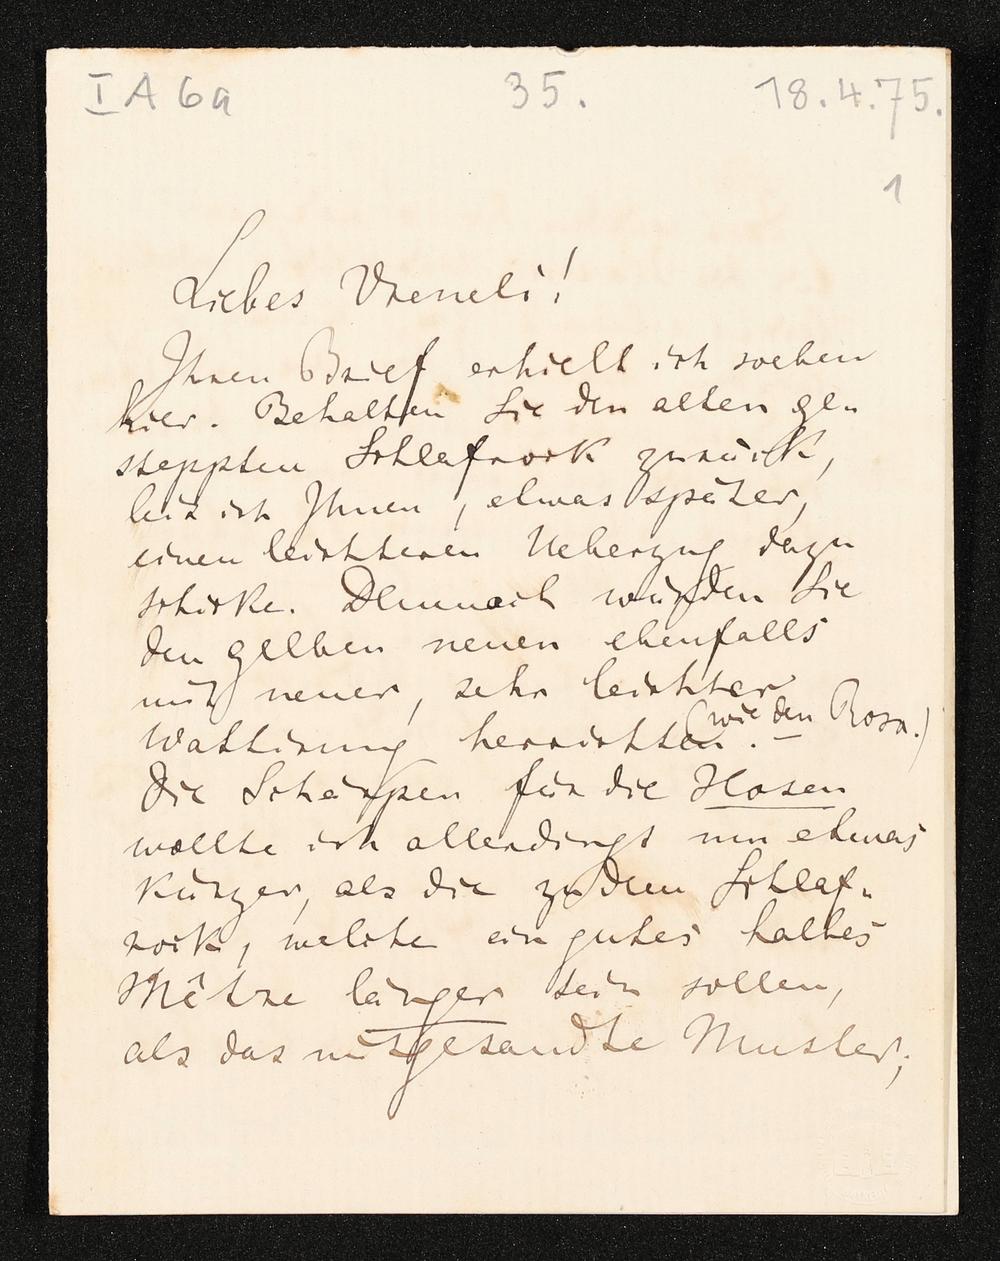 I A 6a 35. 18.4.75.
1
Liebes Vreneli!
Ihren Brief erhielt ich soeben
hier. Behalten Sie den alten ge-
steppten Schlafrock zurück,
bis ich Ihnen, etwas später,
einen leichteren Ueberzug dazu
schicke. Demnach würden Sie
den gelben neuen ebenfalls
mit neuer, sehr leichter
Wattirung herrichten. (wie den Rosa.)
Die Schärpen für die Hosen
wollte ich allerdings nun etwas
kürzer, als die zu dem Schlaf-
rock, welche ein gutes halbes
Mêtre länger sein sollen,
als das mitgesandte Muster;